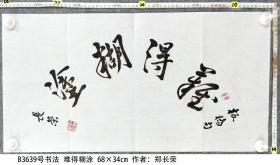 难得糊涂
B3639号书法 难得糊涂 68×34cm 作者：郑长荣